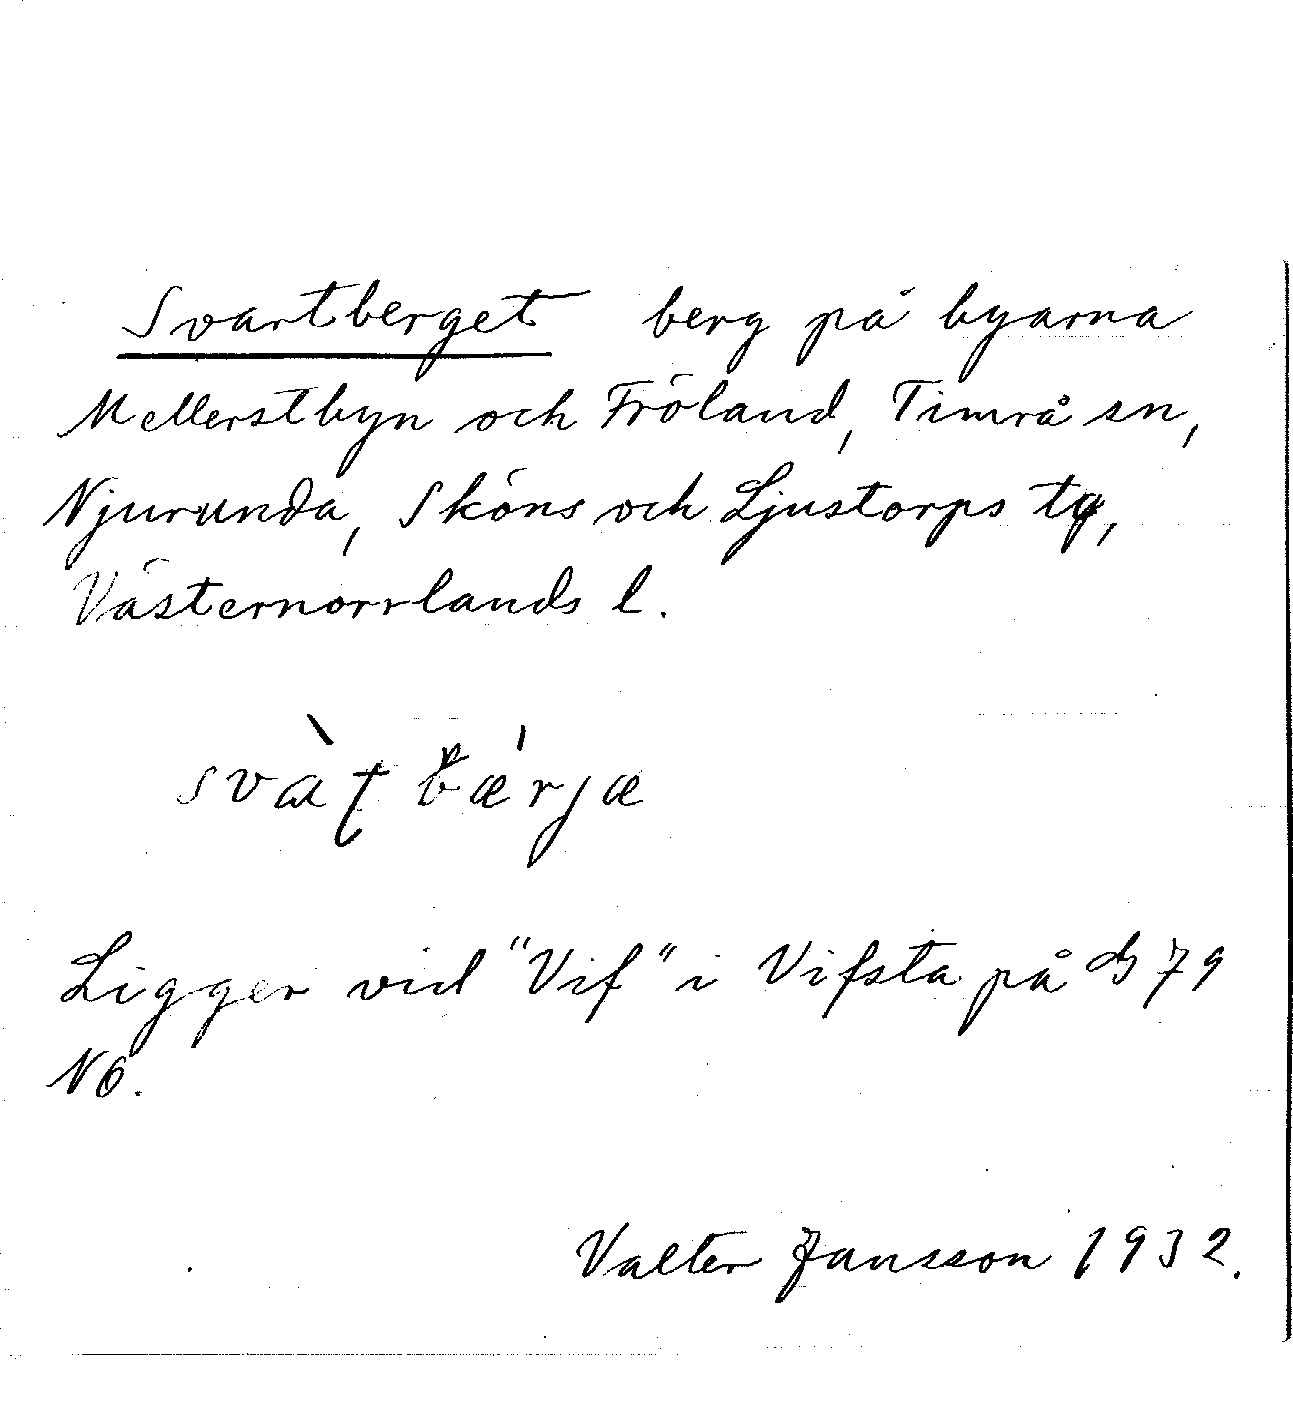 Svartberget berg på byarna
Mellerstbyn och Fröland, Timrå sn,
Njurunda, Sköns och Ljustorps tg,
Västernorrlands l.
svàʈbǽrjæ
Ligger vid "Vif" i Vifsta på db 79
NÖ.
Valter Jansson 1932.